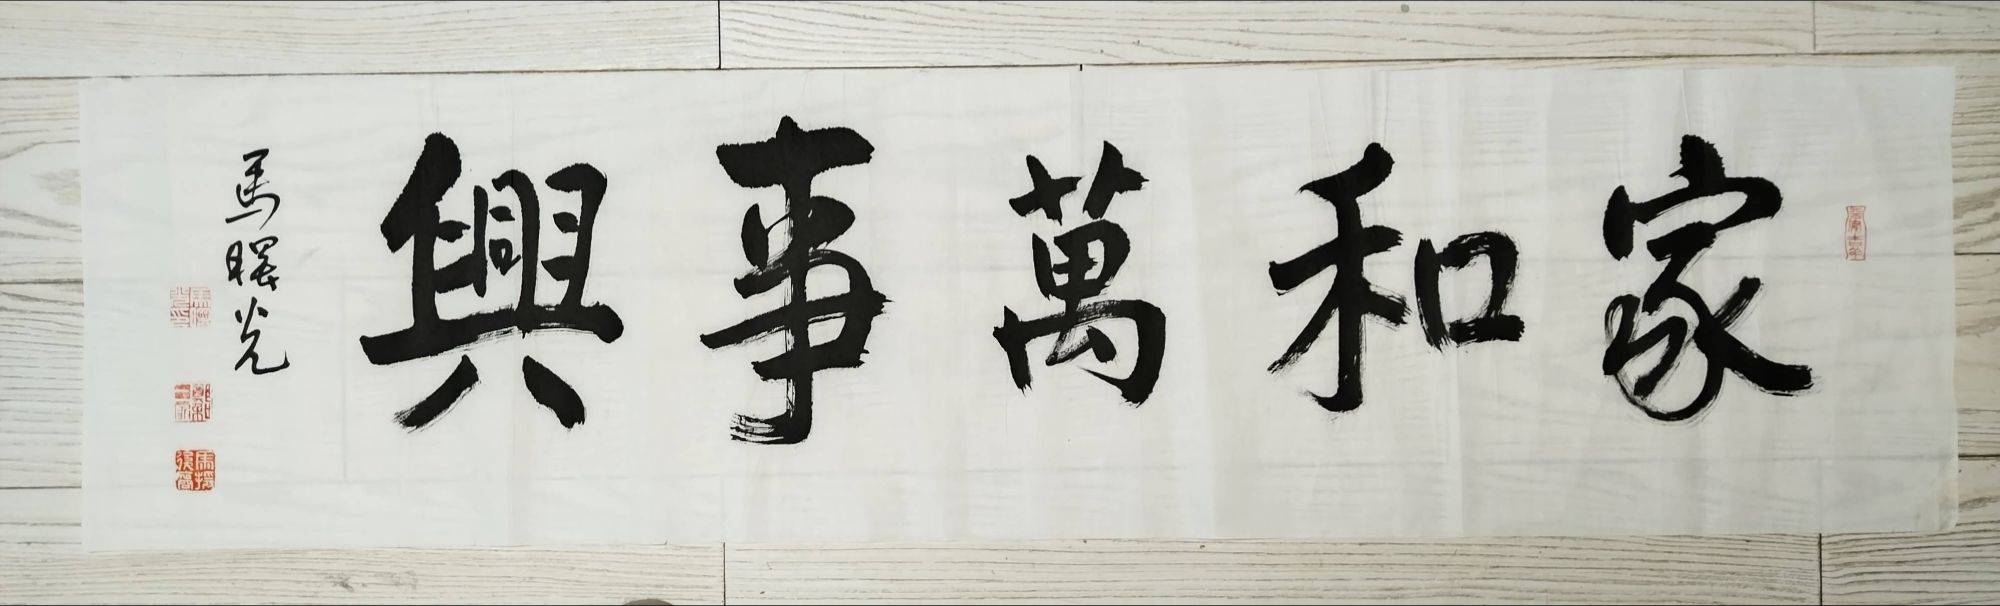 家和萬事興
馬曙光